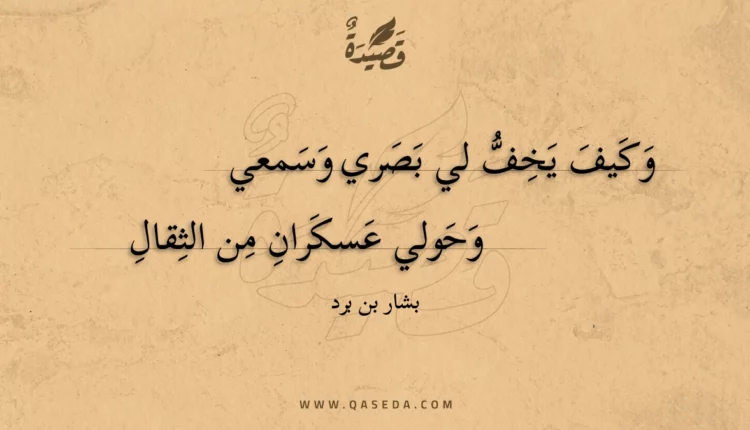 قَصِيدَةٌ
وَكَيفَ يَخِفُّ لي بَصَري وَسَمعي
وَحَولي عَسكَرانِ مِن الثِقالِ
بشار بن برد
WWW.QASEDA.COM